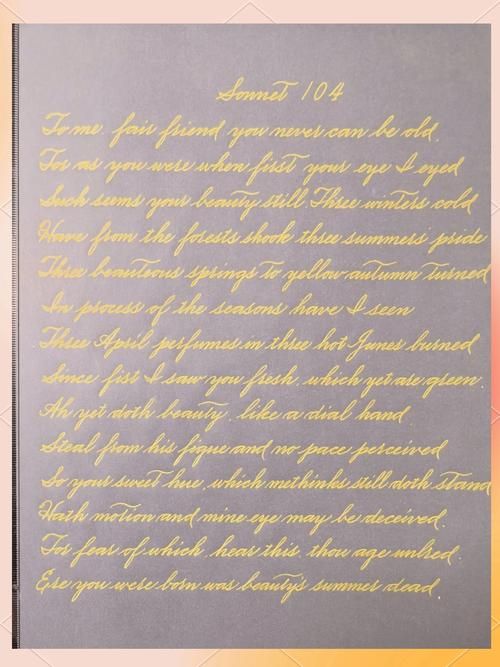 Sonnet 104
To me. fair friend you never can be old.
For as you were when first your eye I eyed
Such seems your beauty still Three winters cold
Have from the forests shook three summers' pride
Three beauteous springs to yellow autumn turned
In process of the seasons have I seen
Three April perfumes in three hot Junes burned
Since fist I saw you fresh, which yet are green.
Ah yet doth beauty, like a dial hand.
Steal from his figue and no pace perceived
So your sweet hue, which methinks still doth stand
Hath motion and mine eye may be deceived.
For fear of which, hear this, thou age unbred.
Ere you were born was beauty's summer dead.